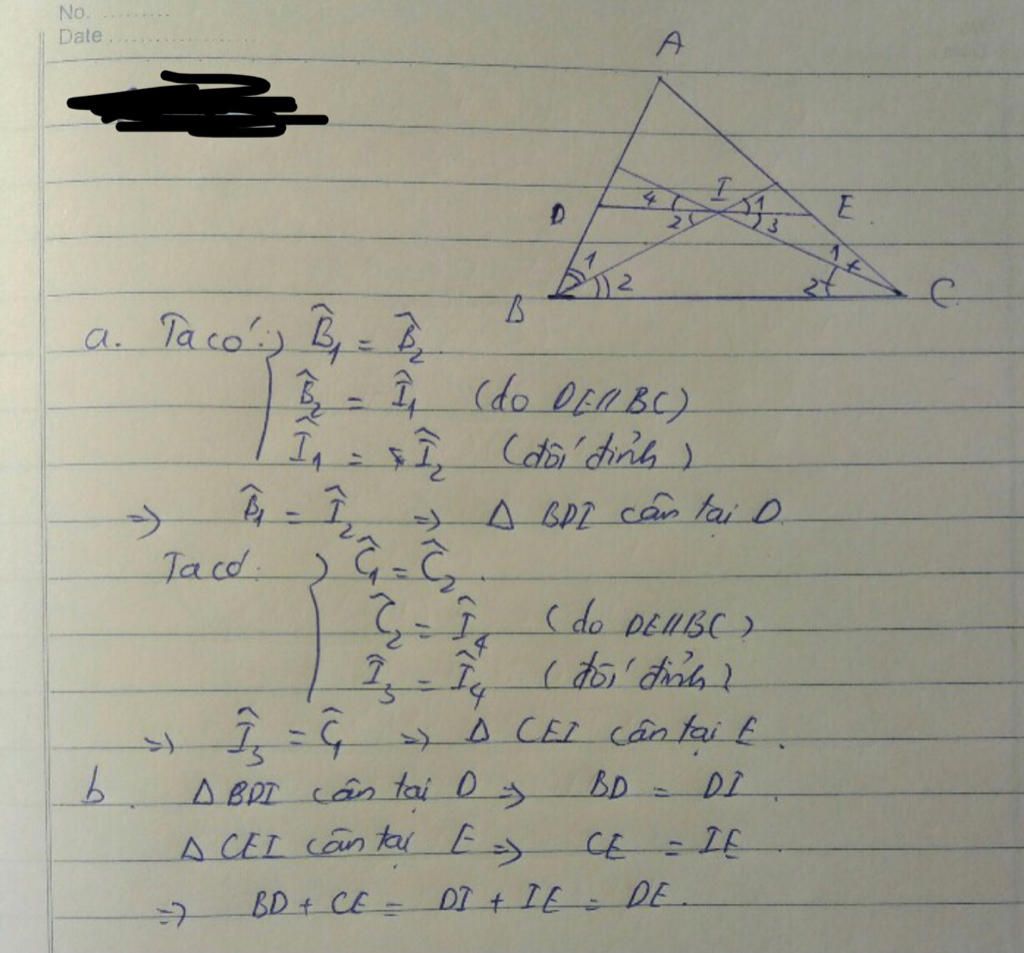 No. ..........
Date ....................
A
D 4 I 1 E
2 3
1 2 1
2
B C
a. Ta có: B̂₁ = B̂₂
B̂₂ = Î₁ (do DE//BC)
Î₁ = Î₂ (đối đỉnh)
=> B̂₁ = Î₂ => Δ BDI cân tại D.
Ta có: Ĉ₁ = Ĉ₂.
Ĉ₂ = Î₄ (do DE//BC)
Î₃ = Î₄ (đối đỉnh)
=> Î₃ = Ĉ₁ => Δ CEI cân tại E.
b. Δ BDI cân tại D => BD = DI.
Δ CEI cân tại E => CE = IE
=> BD + CE = DI + IE = DE.